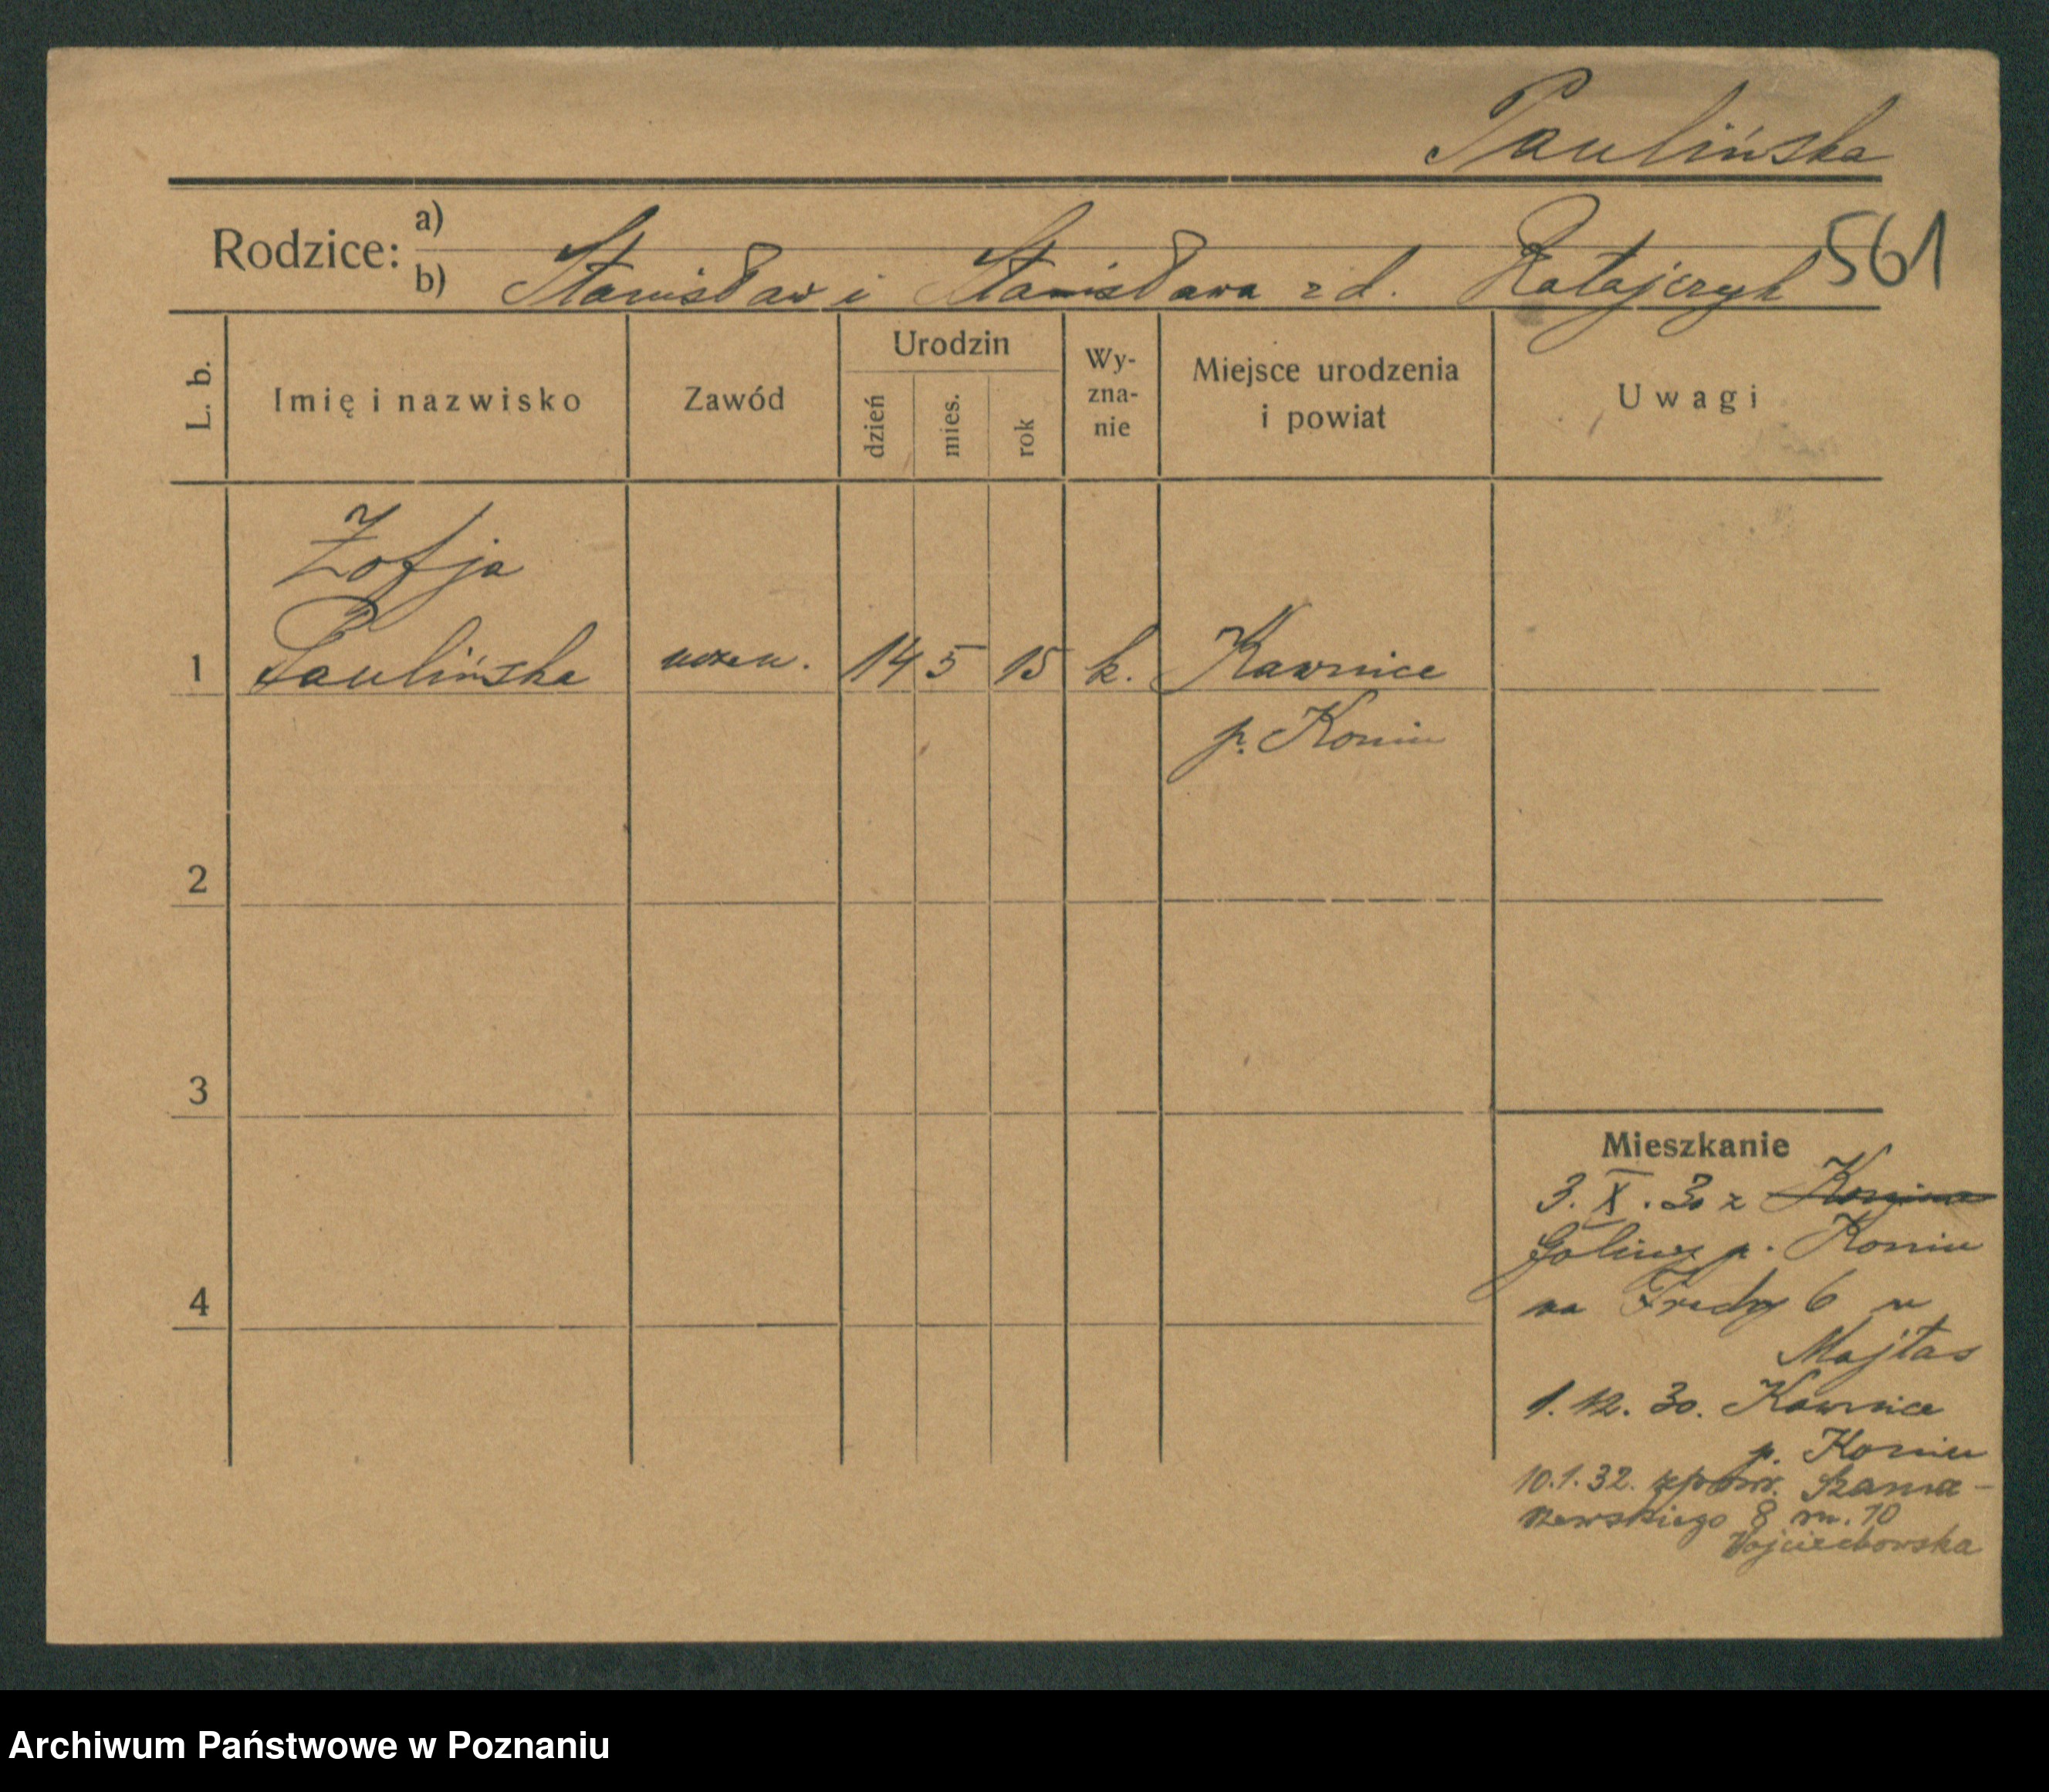 Paulińska
561
Rodzice:
a)
b) Stanisław i Stanisława z d. Ratajczyk
L. b.
Imię i nazwisko
Zawód
Urodzin
dzień
mies.
rok
Wy-
zna-
nie
Miejsce urodzenia
i powiat
Uwagi
Zofja
1 Paulińska uczen. 14 5 15 k. Kawnice
p. Konin
2
3
4
Mieszkanie
3. X. 30 z Konina
Goliny p. Konin
na Fredry 6 u
Majtas
1. 12. 30. Kawnice
p. Konin
10.1.32. zpow. Szama-
rzewskiego 8 m. 10
Wojciechowska
Archiwum Państwowe w Poznaniu